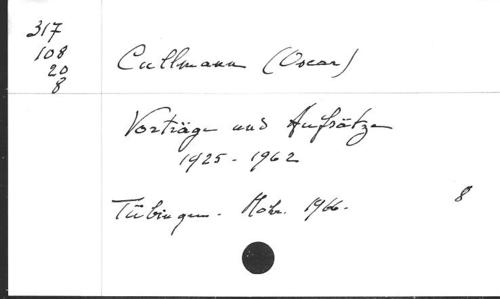 317
108
20
8
Cullmann (Oscar)
Vorträge und Aufsätze
1925-1962
Tübingen. Mohr. 1966.
8